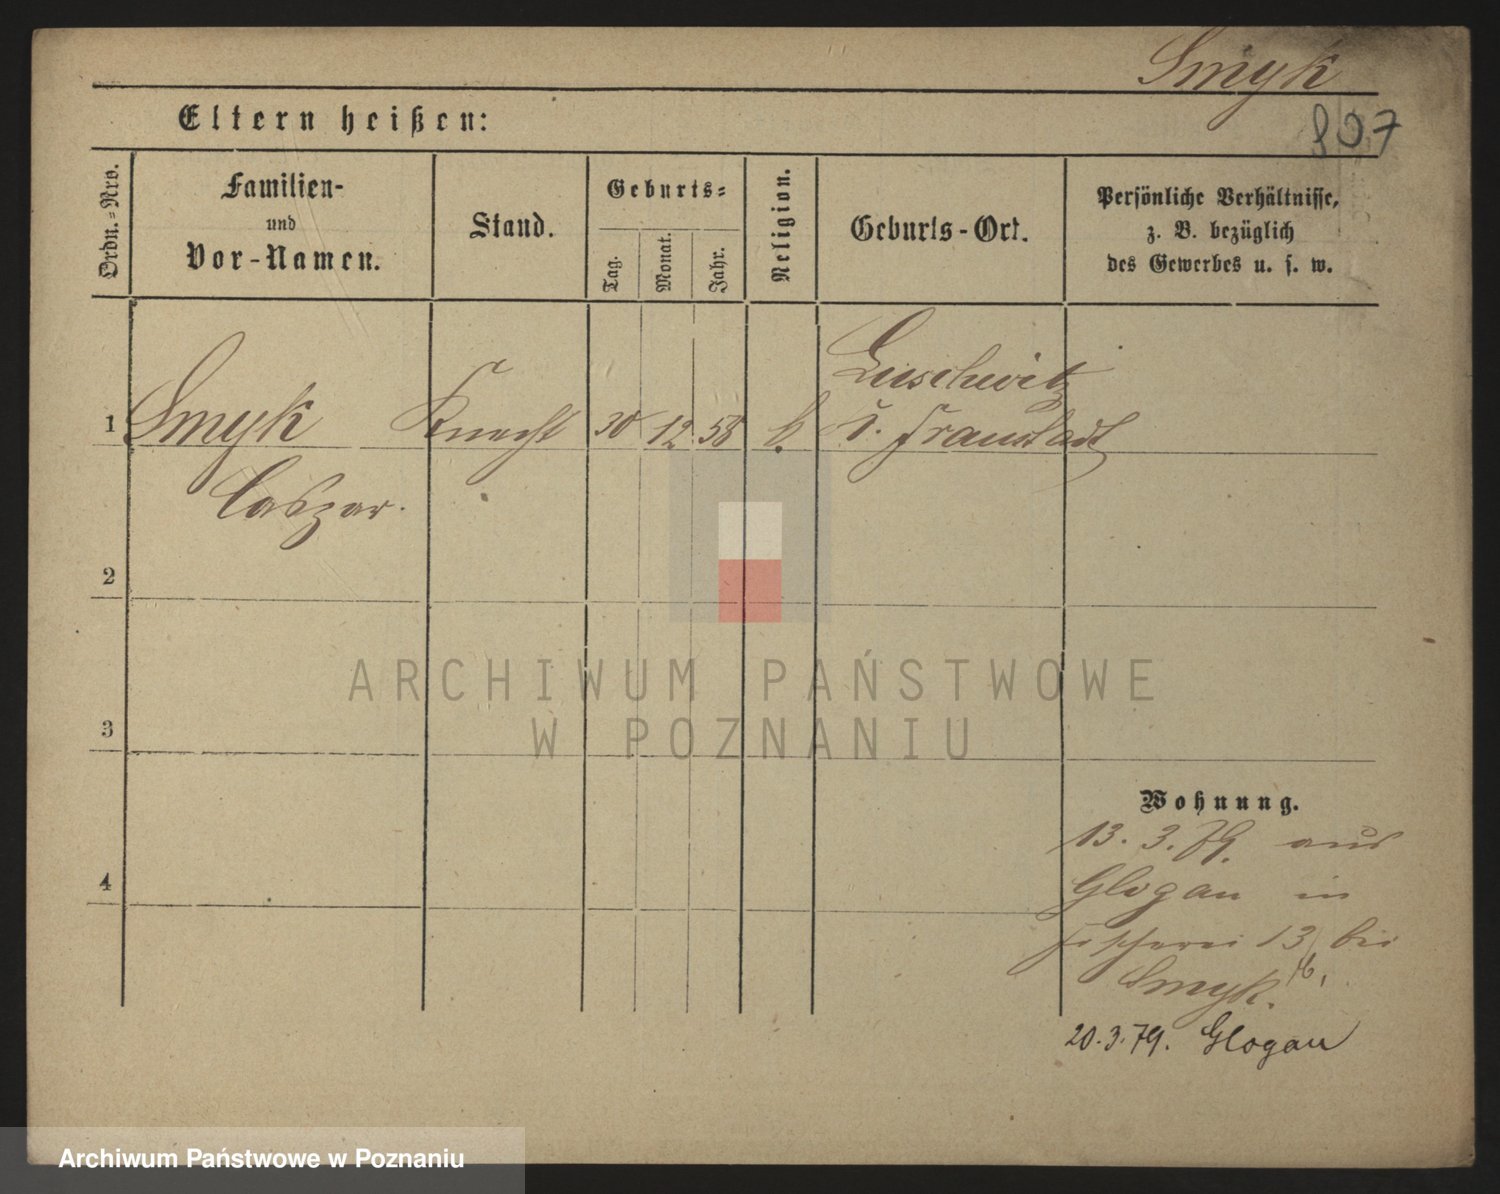 Smyk
807
Eltern heißen:
Ordn.=Nro.
Familien-
und
Vor-Namen.
Stand.
Geburts=
Tag.
Monat.
Jahr.
Religion.
Geburts-Ort.
Persönliche Verhältnisse,
z. B. bezüglich
des Gewerbes u. s. w.
1
Smyk
Knecht
30
12
58
k.
Luschwitz
i. Fraustadt
Caspar.
2
3
4
ARCHIWUM PAŃSTWOWE
W POZNANIU
Wohnung.
13. 3. 79. aus
Glogau in
Fischerei 13 bei
Smyk.
20.3.79. Glogau
Archiwum Państwowe w Poznaniu